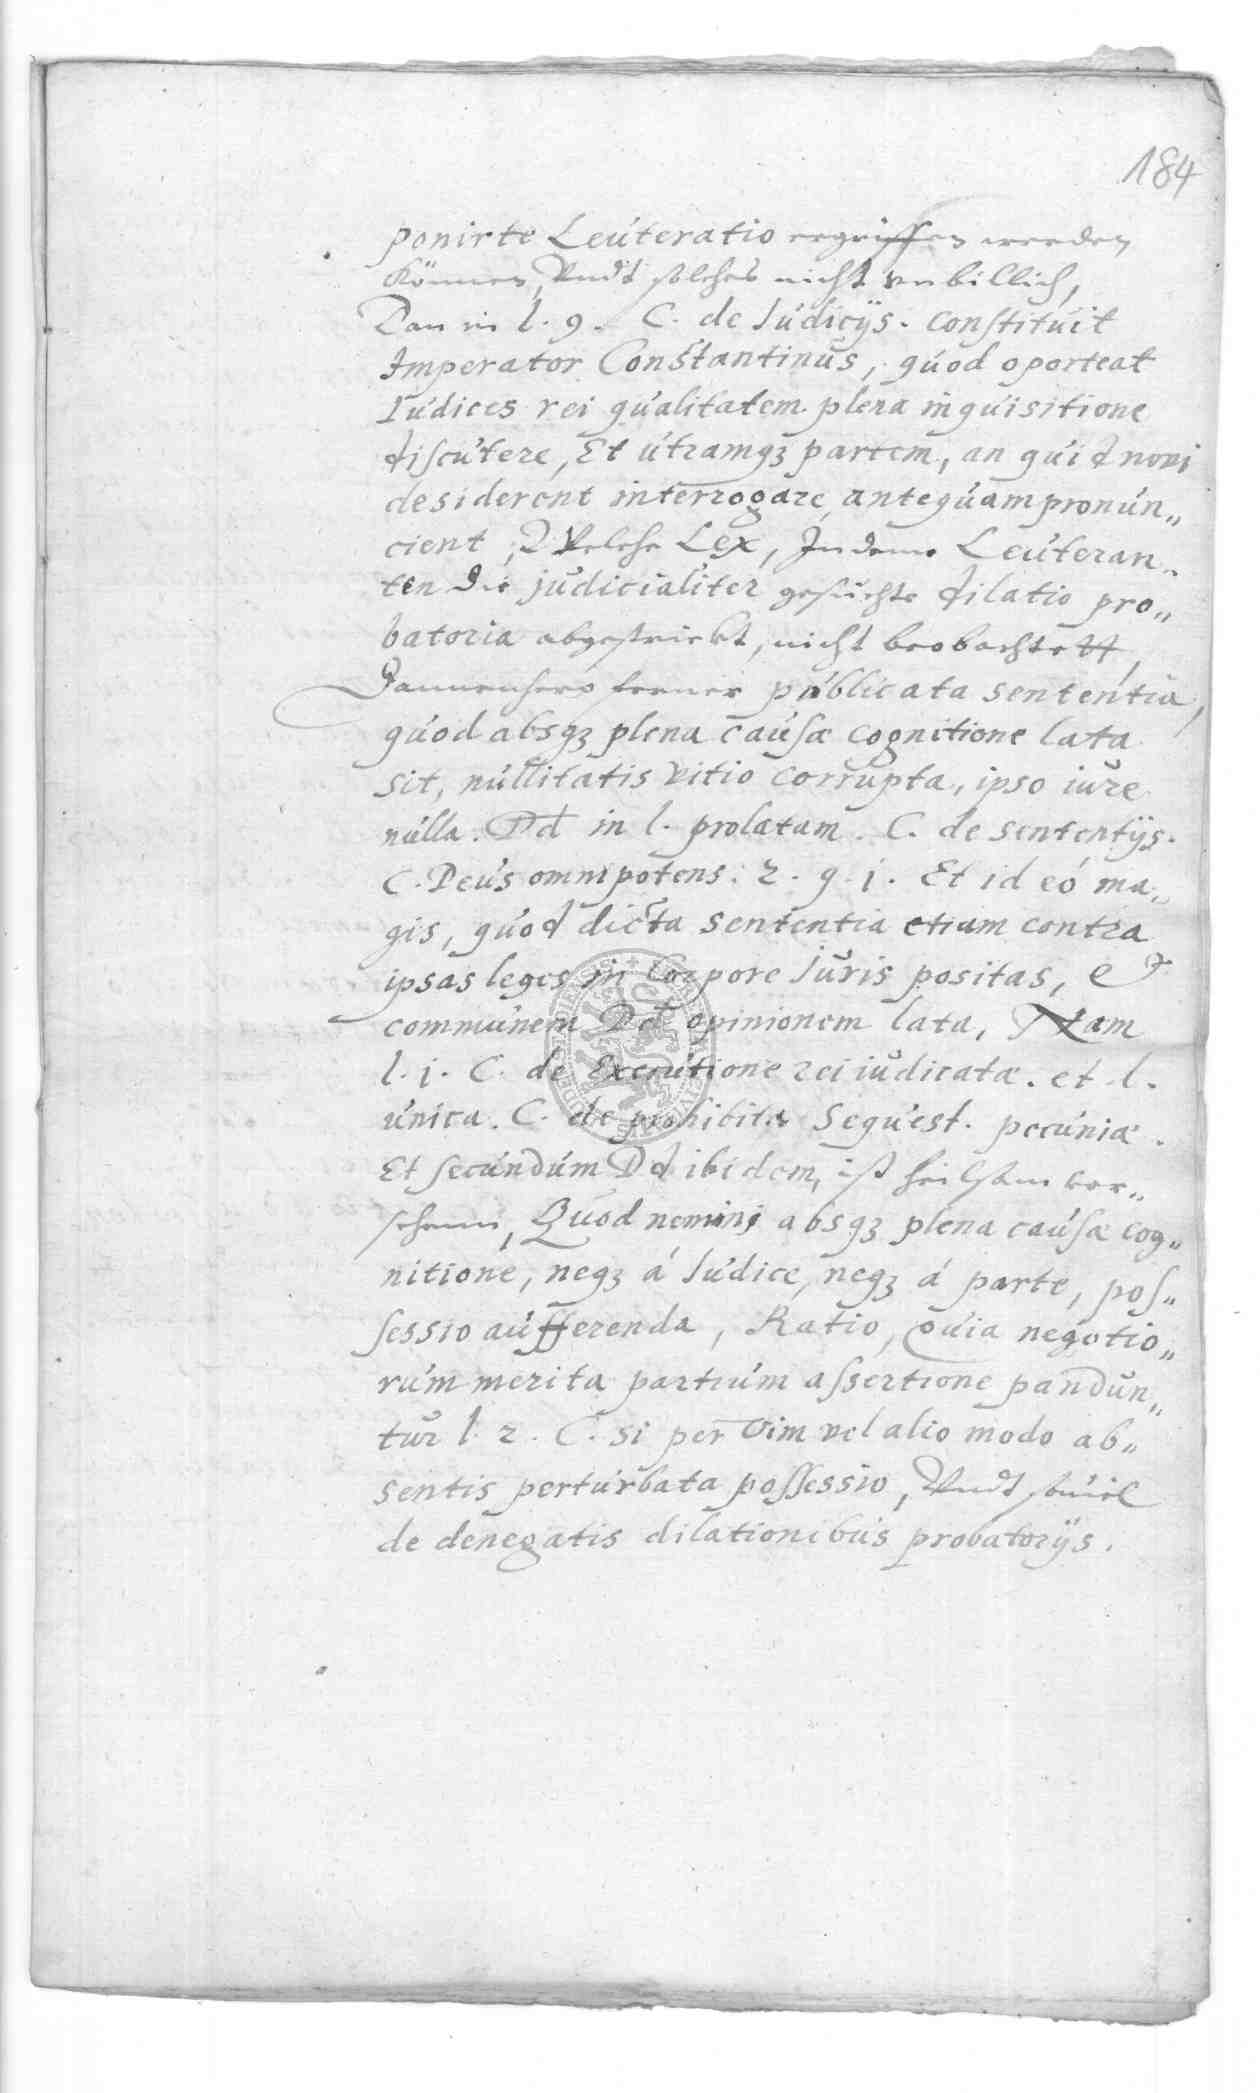 184
ponirte Leuteratio ergriffen werden
können, Vndt solches nicht vnbillich,
Dan in l. 9. C. de Iudicijs. constituit
Imperator Constantinus, quod oporteat
Iudices rei qualitatem plena inquisitione
discutere, Et utramqȝ partem, an quid novi
desiderent interrogare, antequam pronun„
cient, Welche Lex, In deme Leuteran„
ten die judicialiter gesuchte dilatio pro„
batoria abgestrickt, nicht beobachtett,
Dannenhero ferner publicata sententia,
quod absqȝ plena causæ cognitione lata
sit, nullitatis vitio corrupta, ipso iure
nulla. Dd in l. prolatam. C. de sententijs.
C. Deus omnipotens. 2. q. j. Et id eó ma„
gis, quod dicta sententia etiam contra
ipsas leges in Corpore Iuris positas, et
communem Dd opinionem lata, Nam
l. j. C. de Executione rei iudicatæ. et l.
unica. C. de prohibita Sequest. pecuniæ.
Et secundum Dd ibidem, ist heilsam ver„
sehenn, Quod nemini absqȝ plena causæ cog„
nitione, neqȝ á Iudice, neqȝ á parte, pos„
sessio aufferenda, Ratio, Quia negotio„
rum merita partium assertione pandun„
tur l. 2. C. si per vim vel alio modo ab„
sentis perturbata possessio, Vndt souiel
de denegatis dilationibus probatorijs.